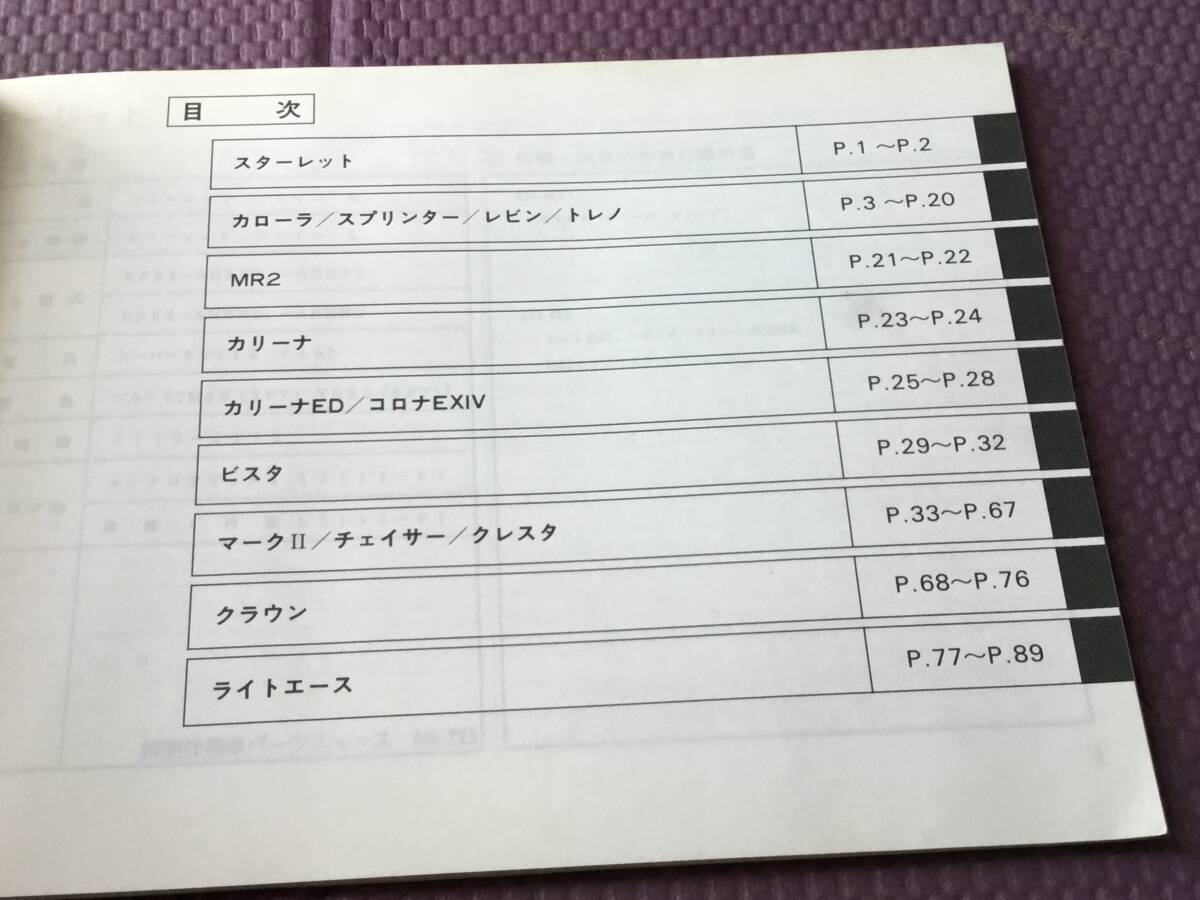 目　　次
スターレット　P.1 〜P.2
カローラ／スプリンター／レビン／トレノ　P.3 〜P.20
MR2　P.21〜P.22
カリーナ　P.23〜P.24
カリーナED／コロナEXIV　P.25〜P.28
ビスタ　P.29〜P.32
マークII／チェイサー／クレスタ　P.33〜P.67
クラウン　P.68〜P.76
ライトエース　P.77〜P.89